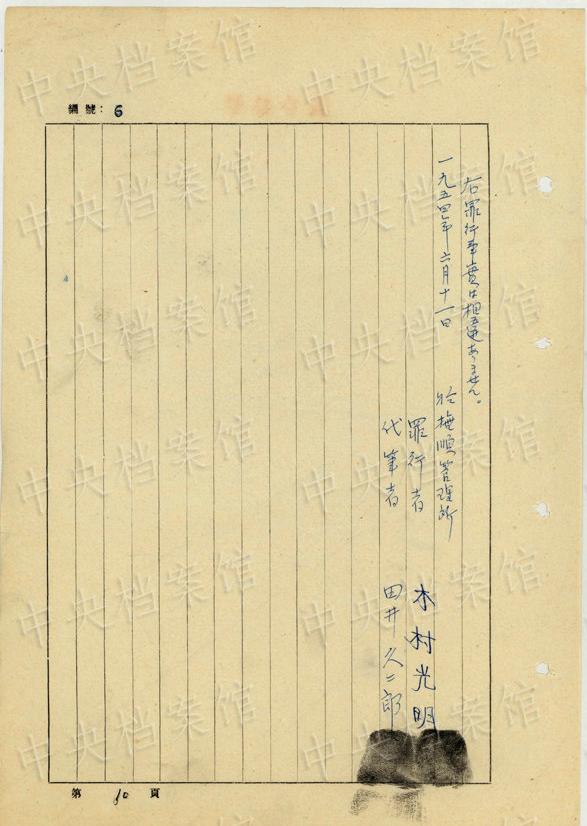 編號：6
右罪行事實は相違ありません。
一九五四年六月十一日
於撫順管理所
罪行者 木村光明
代筆者 田井久二郎
第 10 頁
中央档案馆